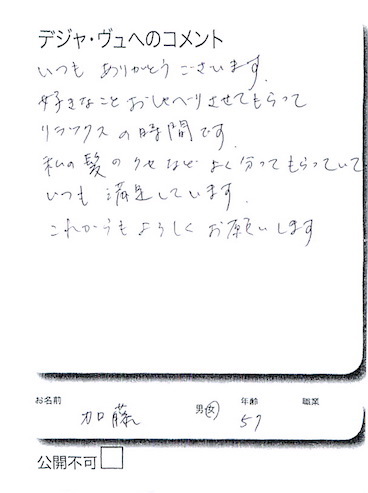 デジャ・ヴュへのコメント
いつも ありがとう ございます.
好きなこと おしゃべりさせてもらって
リラックス の時間です.
私の髪のクセなど よく分ってもらっていて
いつも 満足しています.
これからも よろしく お願いします
お名前 加藤 男 女 年齢 57 職業
公開不可